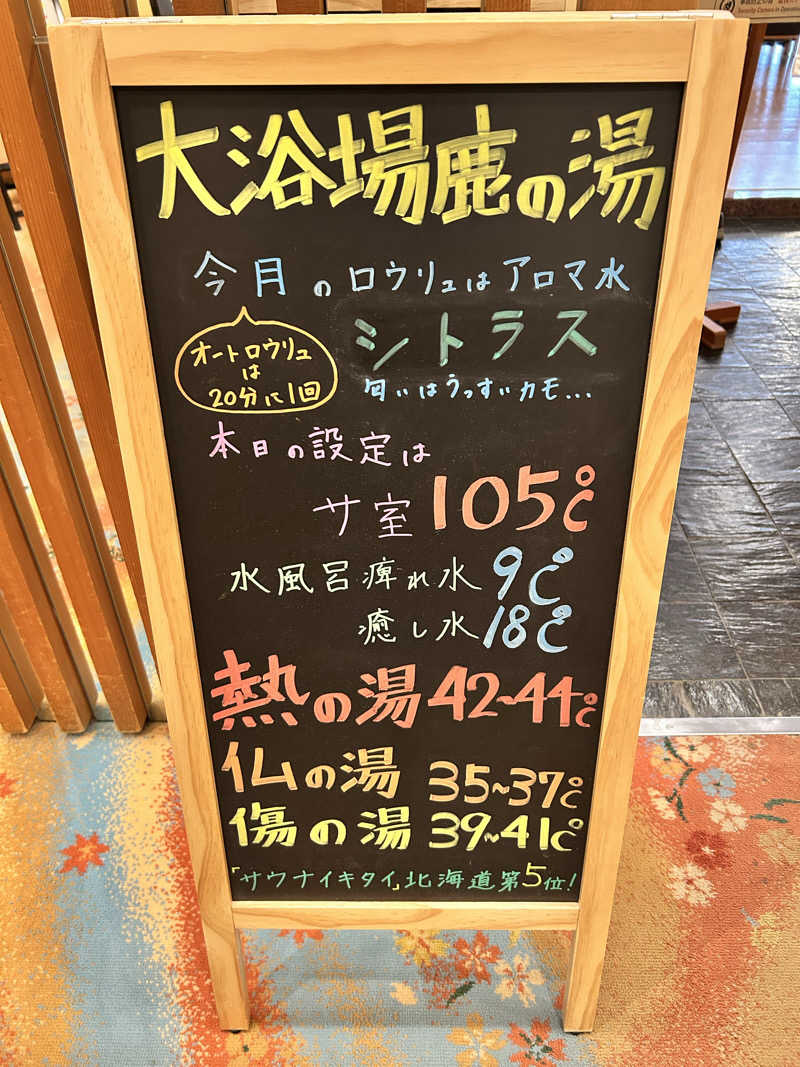 Security Camera in Operation
大浴場鹿の湯
今月のロウリュはアロマ水
シトラス
匂いはうっすいカモ...
オートロウリュ
は
20分に1回
本日の設定は
サ室 105℃
水風呂痺れ水 9℃
癒し水 18℃
熱の湯 42~44℃
仏の湯 35~37℃
傷の湯 39~41℃
「サウナイキタイ」北海道第5位!